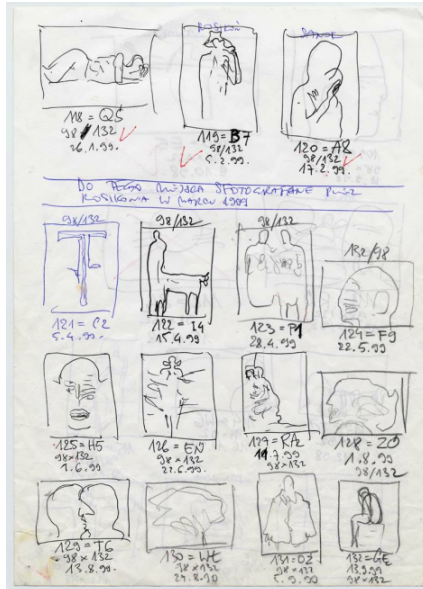 118 = Q5
98/132
26.1.99.
119 = B7
98/132
5.2.99.
120 = A8
98/132
17.2.99.
DO TEGO MIEJSCA SFOTOGRAFOWANE PRZEZ
ROSIKONIA W MARCU 1999
98/132
121 = C2
5.4.99.
98/132
122 = I4
15.4.99
98/132
123 = P1
28.4.99
132/98
124 = F9
22.5.99
125 = H5
98×132
1.6.99
126 = EN
98×132
22.6.99.
127 = RA2
98×132
128 = ZO
1.8.99
98/132
129 = T6
98×132
13.8.99.
130 = WE
98×132
131 = OZ
5.9.99
132 = GE
13.9.99
98×132